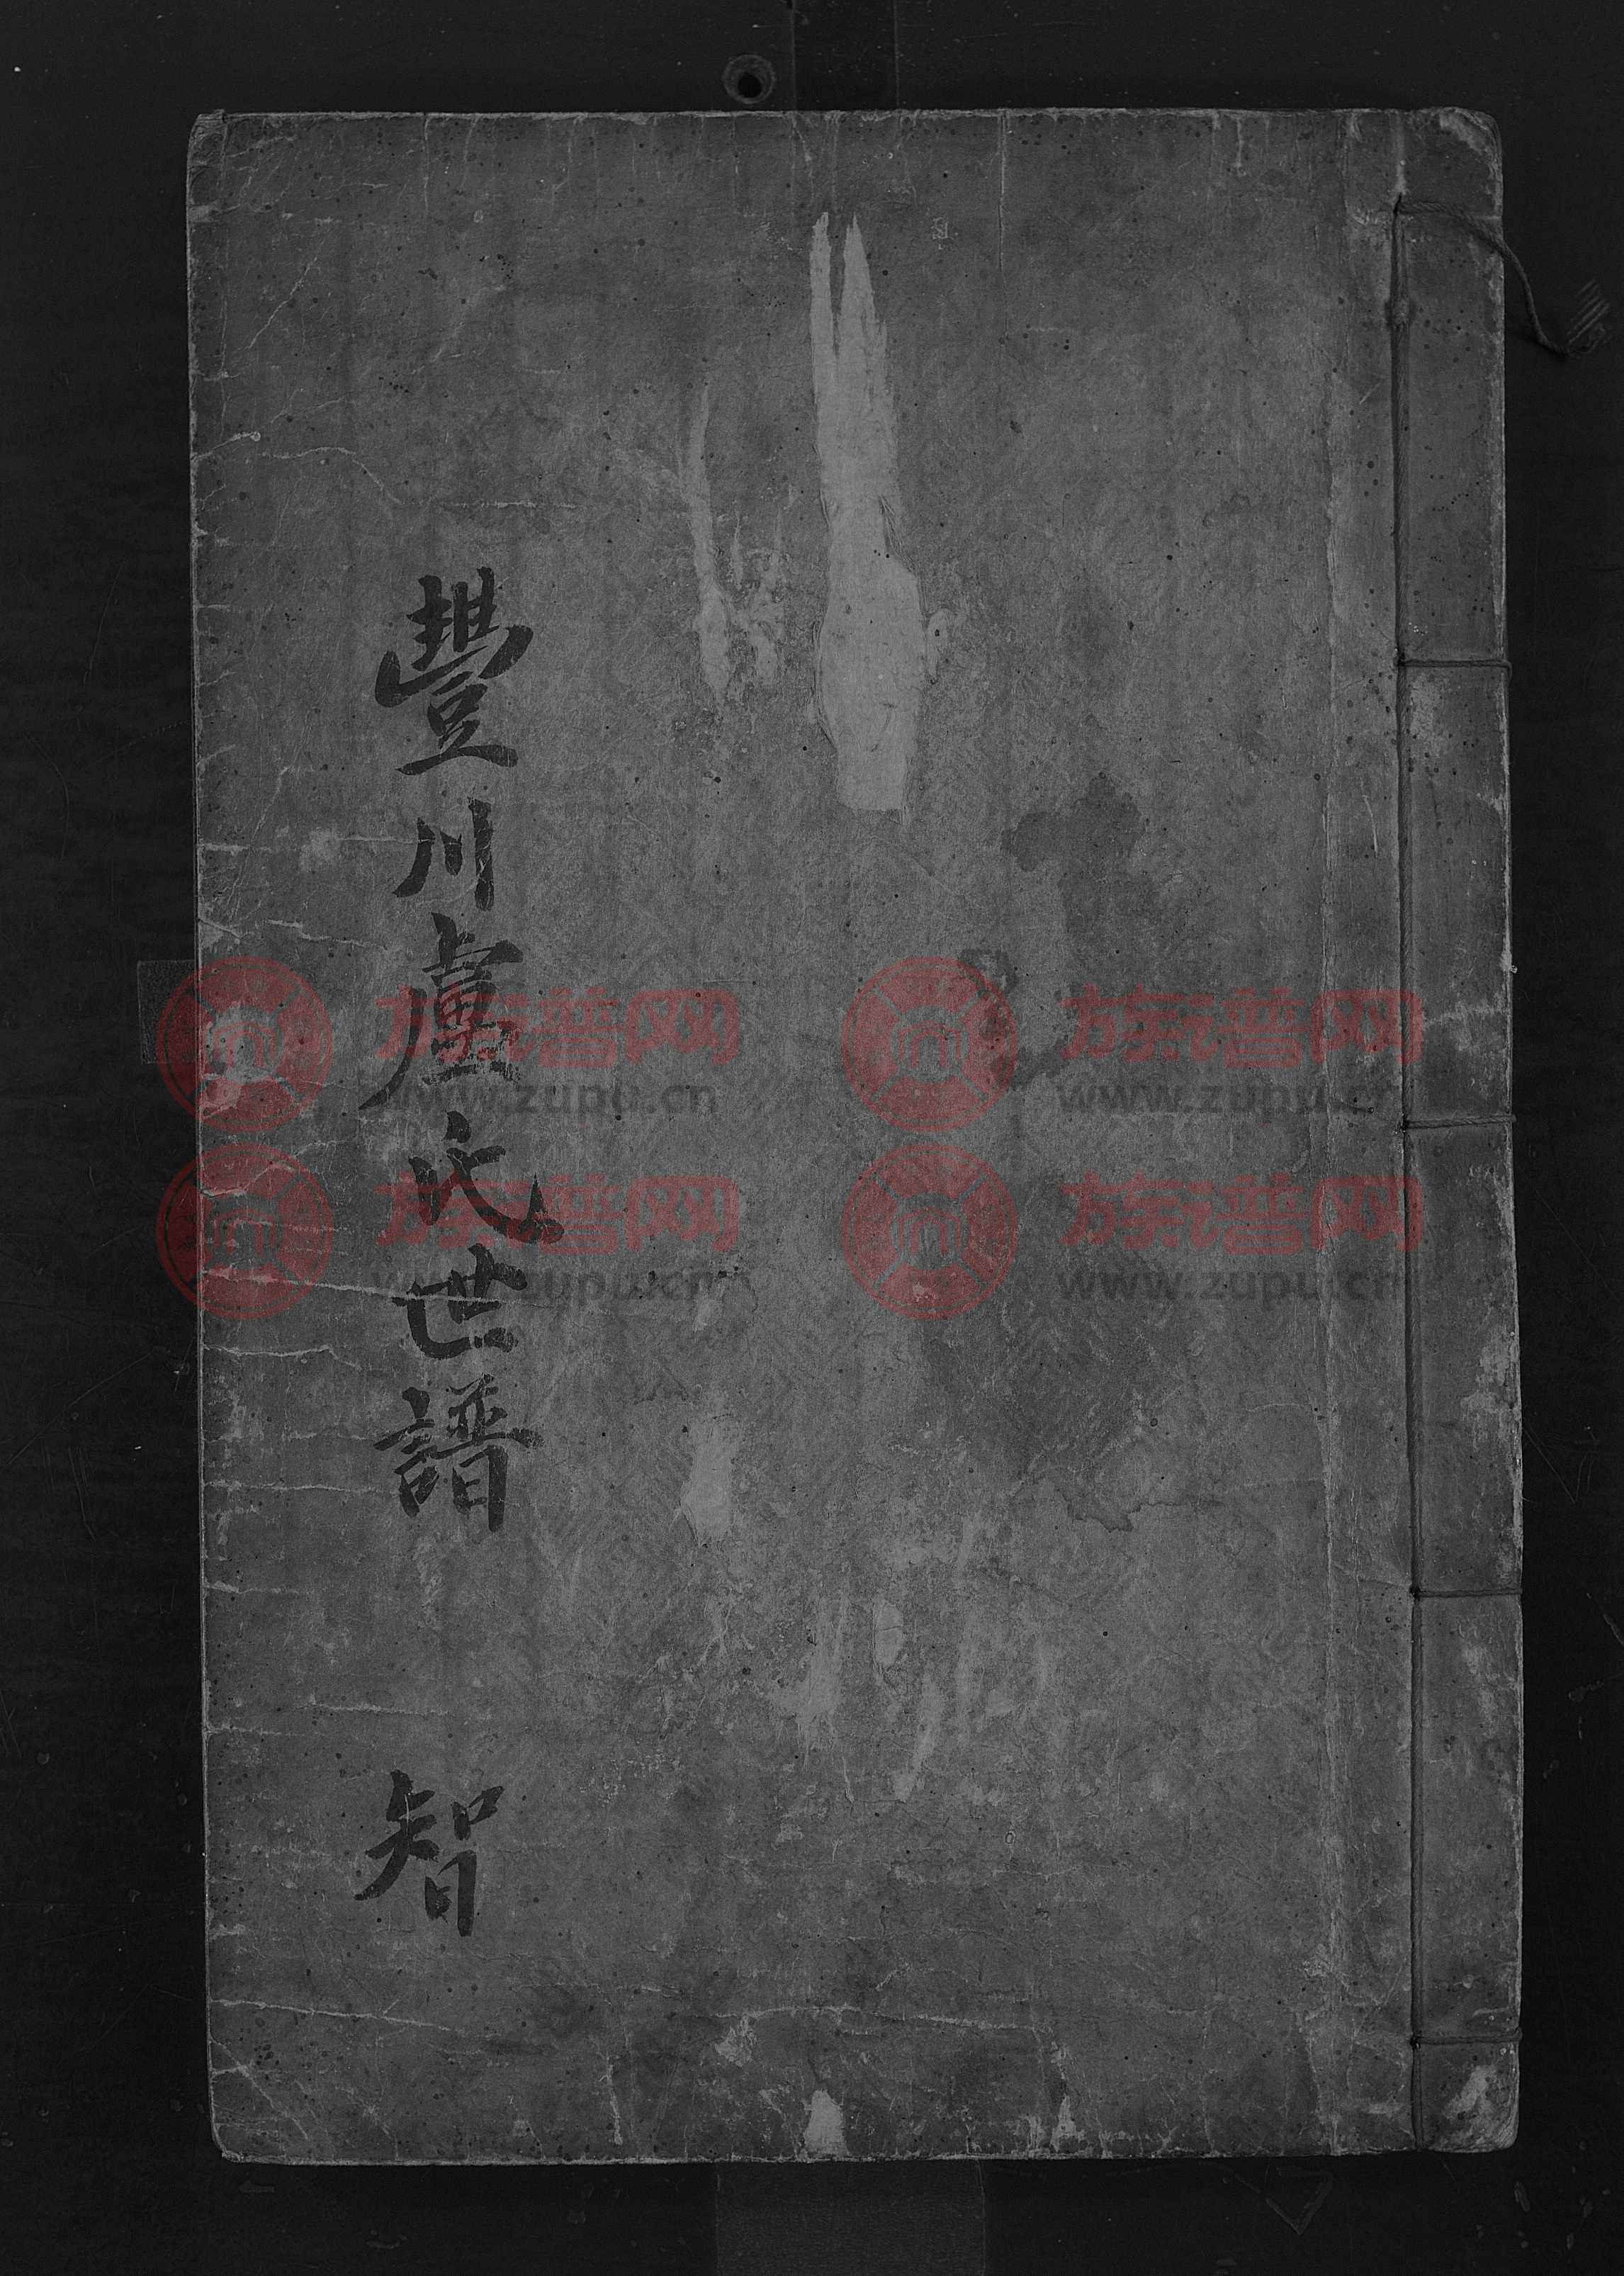 豐川盧氏世譜
智
族谱网
www.zupu.cn
族谱网
www.zupu.cn
族谱网
www.zupu.cn
族谱网
www.zupu.cn